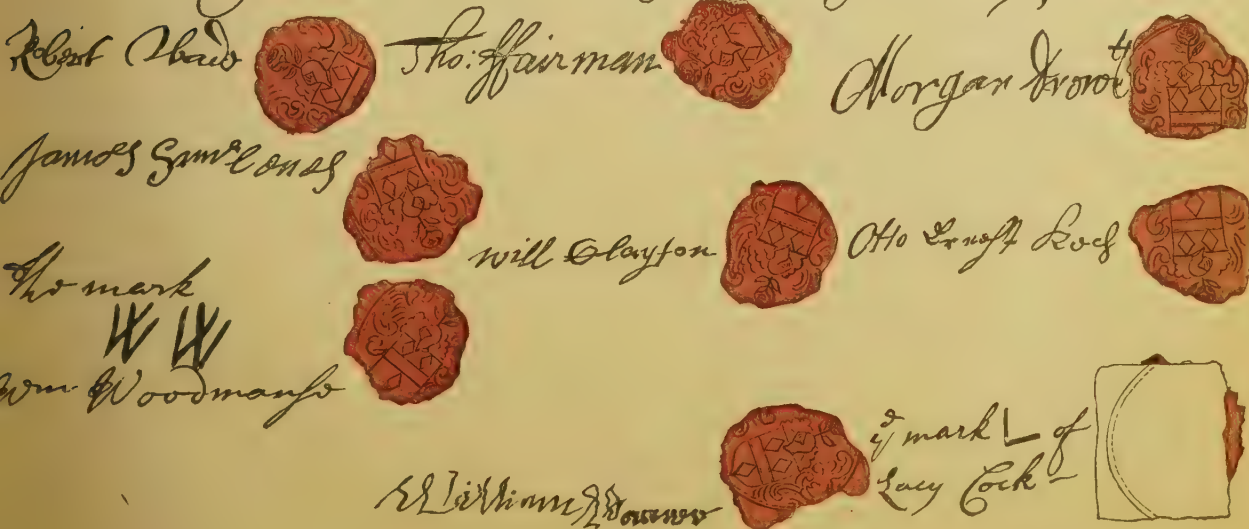 Robert Wade
Tho: ffairman
Morgan Drowet
James Sandelands
Will Clayton
Otto Ernest Koch
The mark
W W
Wm. Woodmanse
William Warner
ye mark L of
Lacy Cock